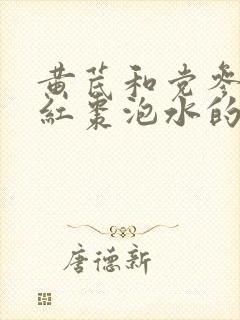 黄芪和党参
红枣泡水的
唐德新